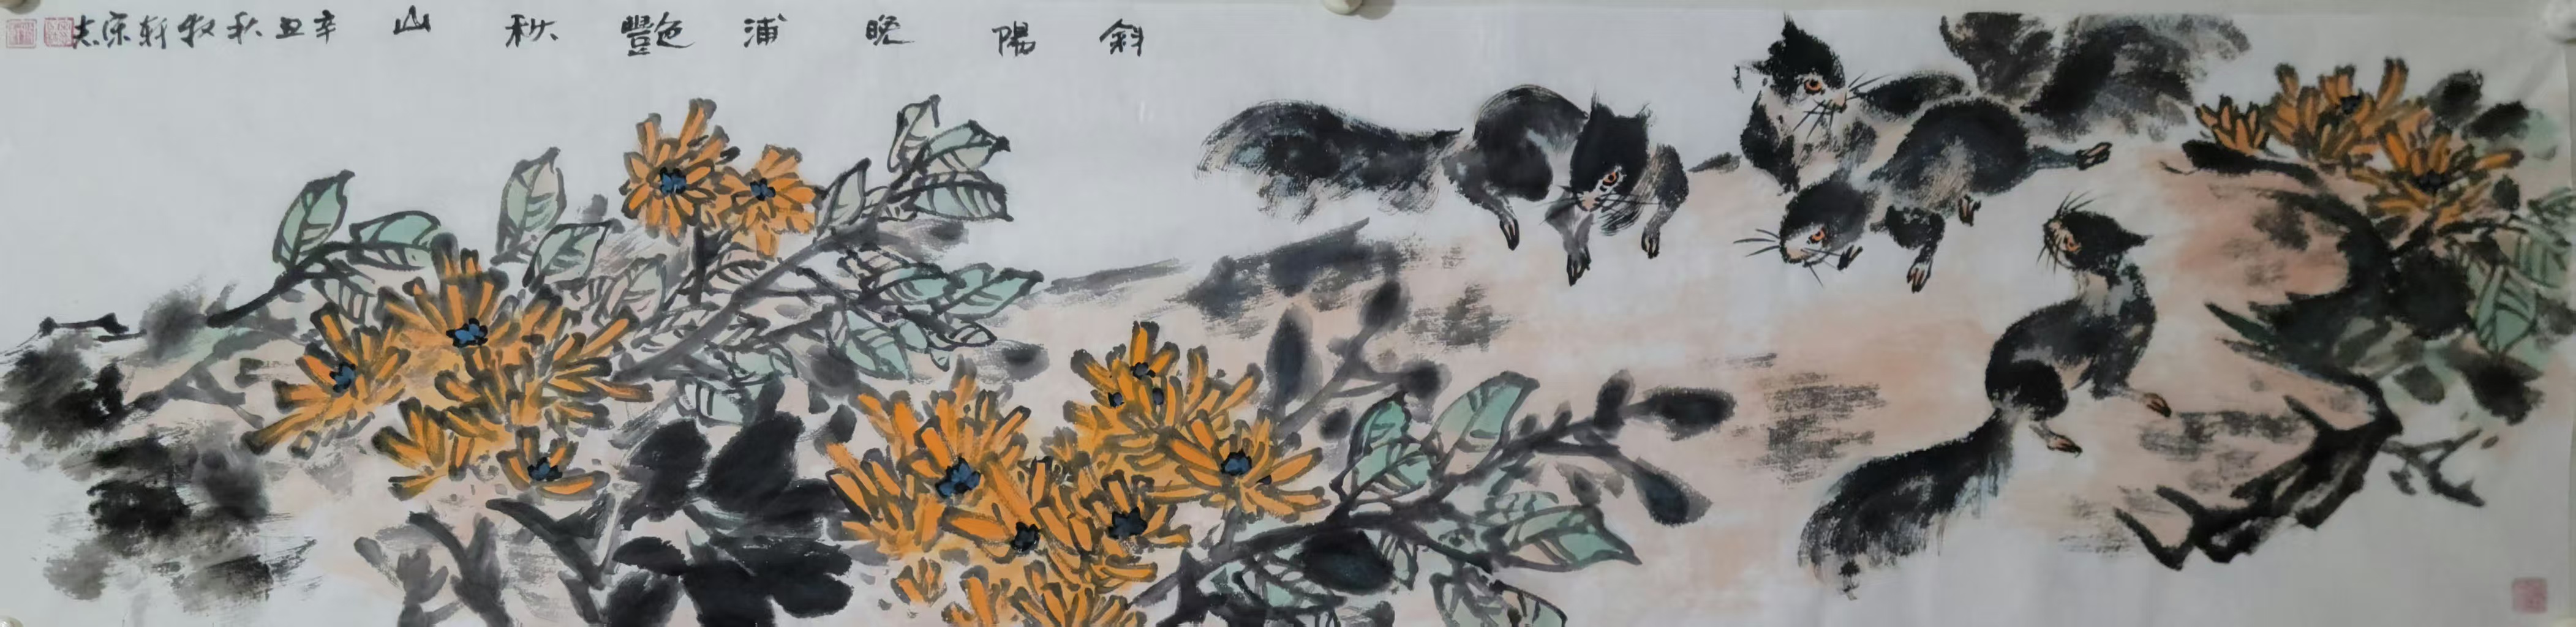 斜陽晚浦豔秋山
辛丑秋牧軒宗志